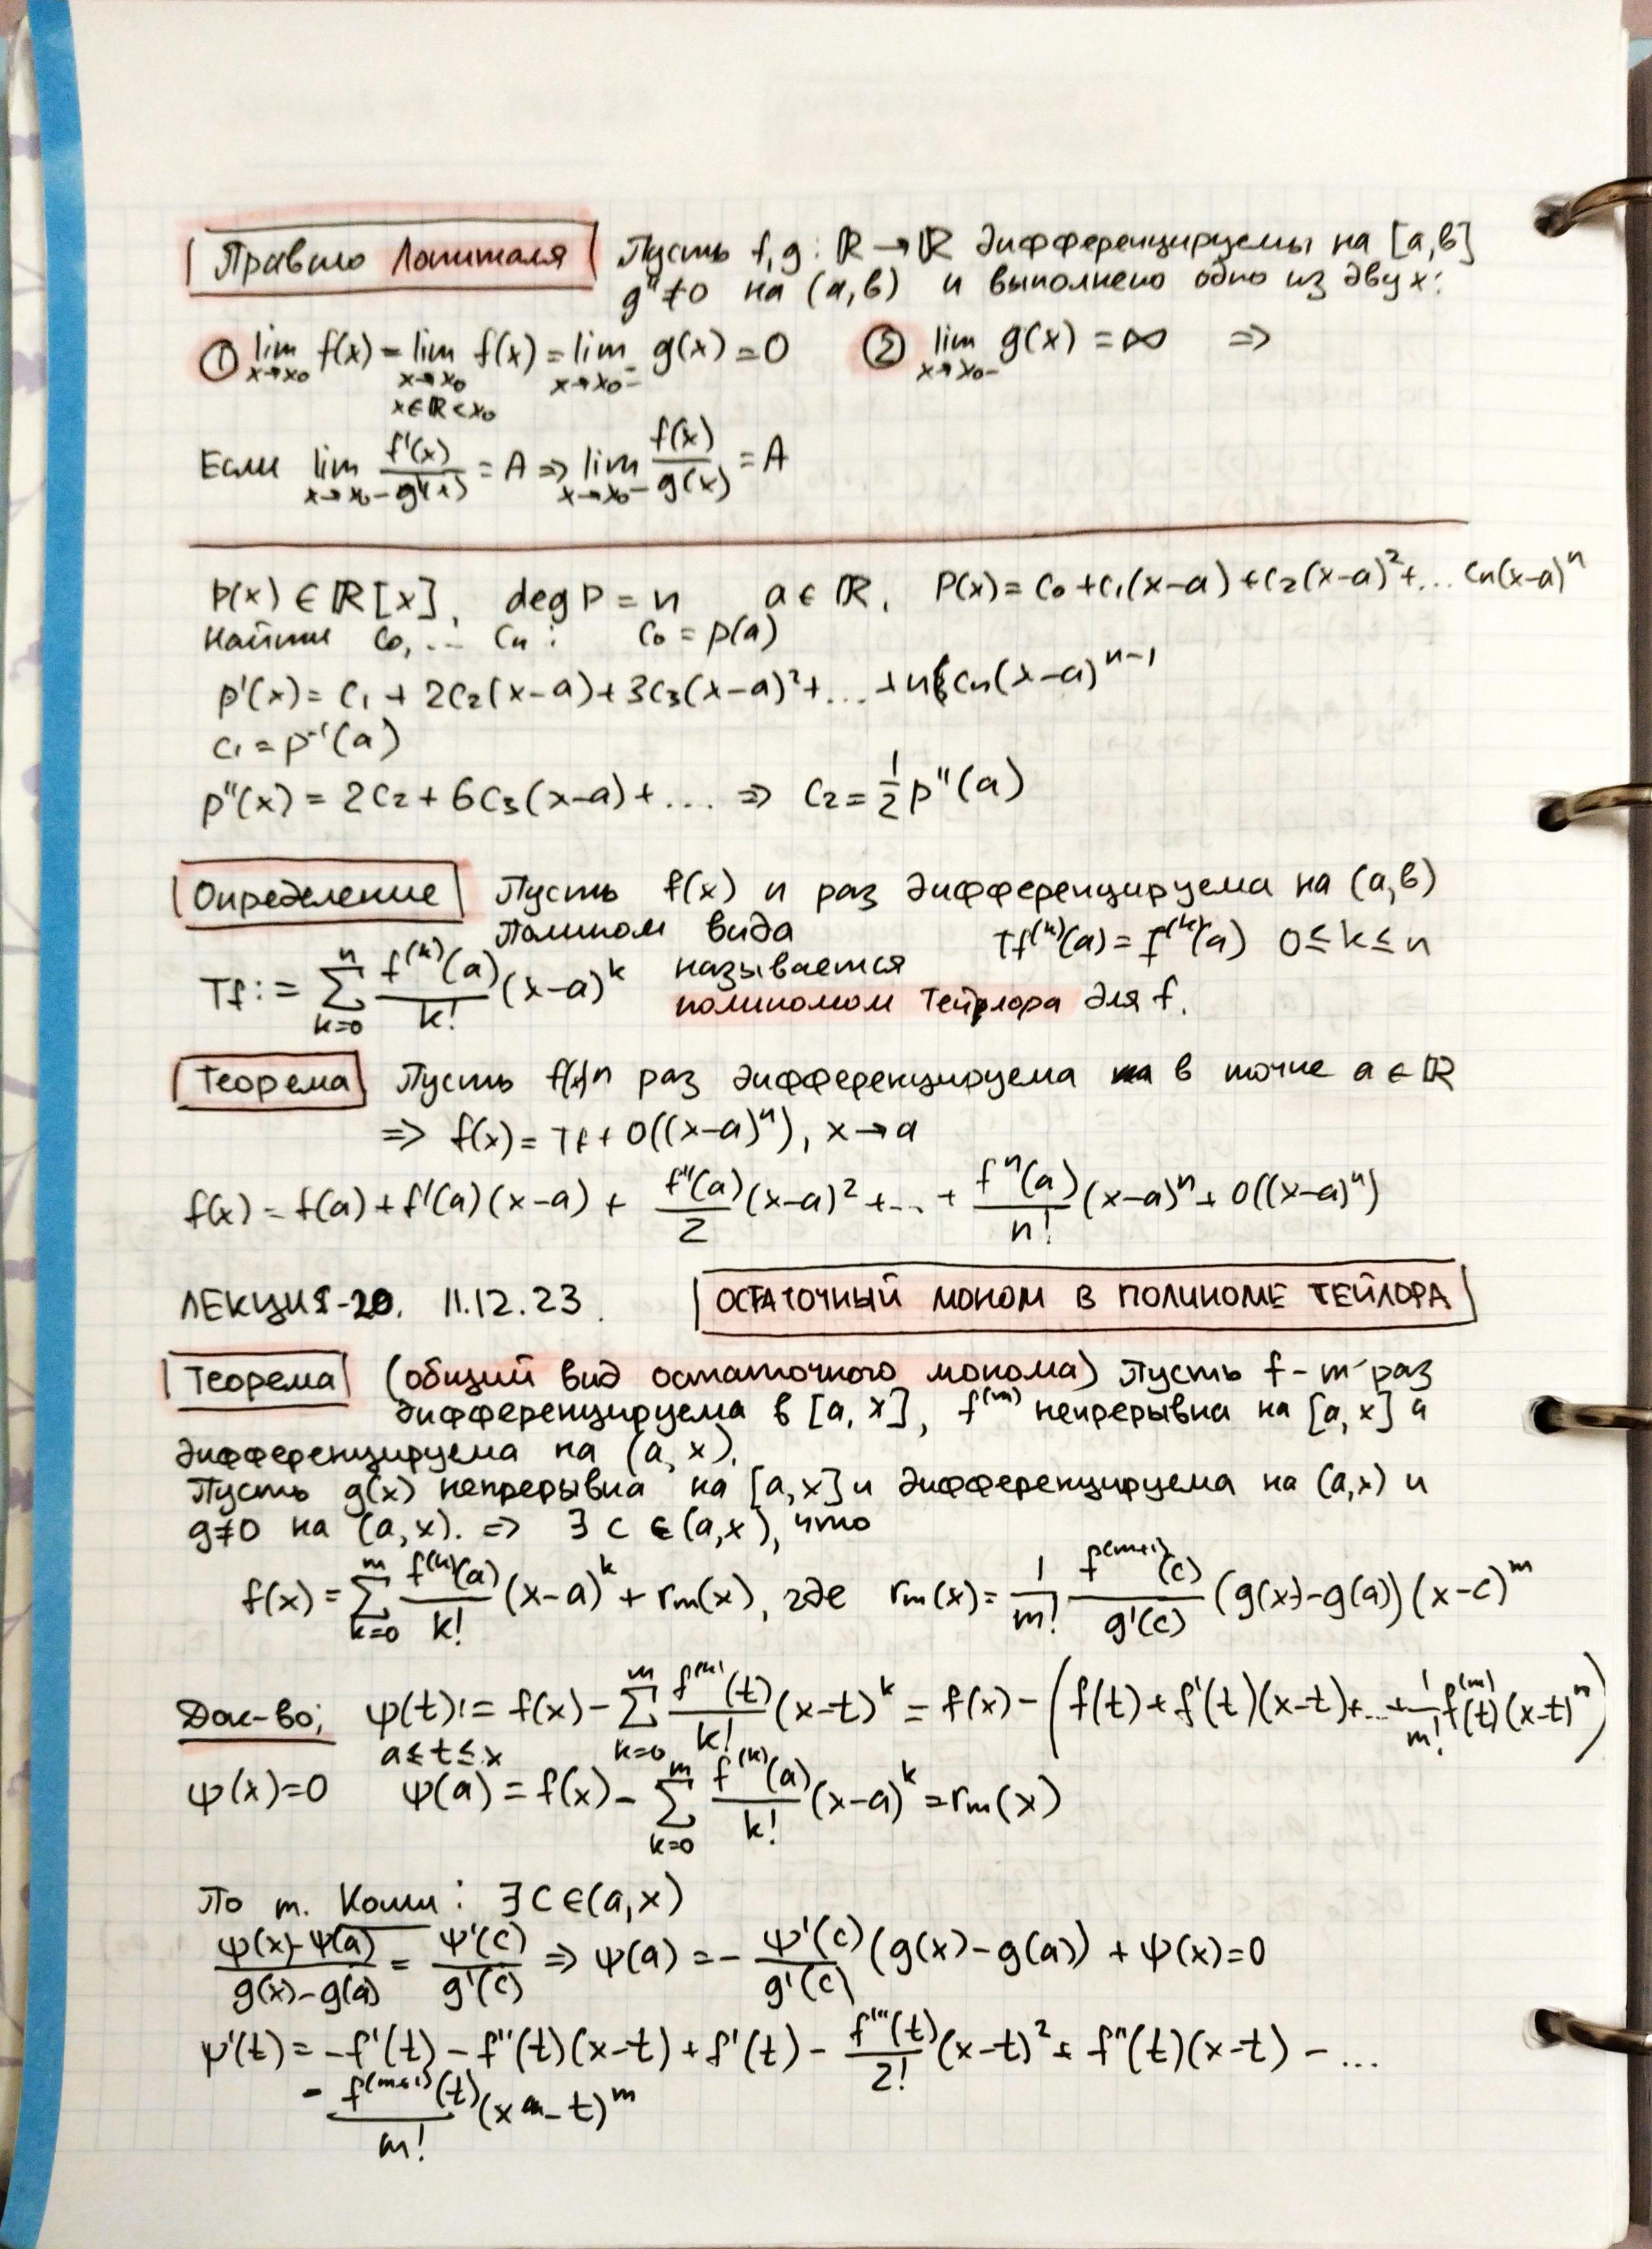 Правило Лопиталя Пусть f,g: ℝ→ℝ дифференцируемы на [a,b]
g'' ≠ 0 на (a,b) и выполнено одно из двух:
① lim_{x→x₀} f(x) = lim_{x→x₀, x∈ℝ<x₀} f(x) = lim_{x→x₀-} g(x) = 0 ② lim_{x→x₀-} g(x) = ∞ ⇒
Если lim_{x→x₀-} f'(x)/g'(x) = A ⇒ lim_{x→x₀-} f(x)/g(x) = A
p(x) ∈ ℝ[x], deg p = n a ∈ ℝ, P(x) = c₀ + c₁(x-a) + c₂(x-a)² + ... cₙ(x-a)ⁿ
Найти c₀, ... cₙ: c₀ = p(a)
p'(x) = c₁ + 2c₂(x-a) + 3c₃(x-a)² + ... + ncₙ(x-a)ⁿ⁻¹
c₁ = p'(a)
p''(x) = 2c₂ + 6c₃(x-a) + ... ⇒ c₂ = 1/2 p''(a)
Определение Пусть f(x) n раз дифференцируема на (a,b)
Полином вида Tf^{(k)}(a) = f^{(k)}(a) 0 ≤ k ≤ n
Tf := ∑_{k=0}^{n} f^{(k)}(a)/k! (x-a)^k называется
полиномом Тейлора для f.
Теорема Пусть f(x) n раз дифференцируема в точке a ∈ ℝ
⇒ f(x) = Tf + o((x-a)ⁿ), x→a
f(x) = f(a) + f'(a)(x-a) + f''(a)/2 (x-a)² + ... + fⁿ(a)/n! (x-a)ⁿ + o((x-a)ⁿ)
ЛЕКЦИЯ-20. 11.12.23. ОСТАТОЧНЫЙ МОНОМ В ПОЛИНОМЕ ТЕЙЛОРА
Теорема (общий вид остаточного монома) Пусть f - m раз
дифференцируема в [a,x], f^{(m)} непрерывна на [a,x] и
дифференцируема на (a,x).
Пусть g(x) непрерывна на [a,x] и дифференцируема на (a,x) и
g≠0 на (a,x). ⇒ ∃ c ∈ (a,x), что
f(x) = ∑_{k=0}^{m} f^{(k)}(a)/k! (x-a)^k + rₘ(x), где rₘ(x) = 1/m! f^{(m+1)}(c)/g'(c) (g(x)-g(a))(x-c)^m
Док-во: ψ(t) := f(x) - ∑_{k=0}^{m} f^{(k)}(t)/k! (x-t)^k = f(x) - (f(t) + f'(t)(x-t) + ... + 1/m! f^{(m)}(t)(x-t)^m)
a ≤ t ≤ x
ψ(x)=0 ψ(a) = f(x) - ∑_{k=0}^{m} f^{(k)}(a)/k! (x-a)^k = rₘ(x)
По т. Коши: ∃ c ∈ (a,x)
ψ(x)-ψ(a)/g(x)-g(a) = ψ'(c)/g'(c) ⇒ ψ(a) = - ψ'(c)/g'(c) (g(x)-g(a)) + ψ(x)=0
ψ'(t) = -f'(t) - f''(t)(x-t) + f'(t) - f'''(t)/2! (x-t)² + f''(t)(x-t) - ...
- f^{(m+1)}(t)/m! (x-t)^m